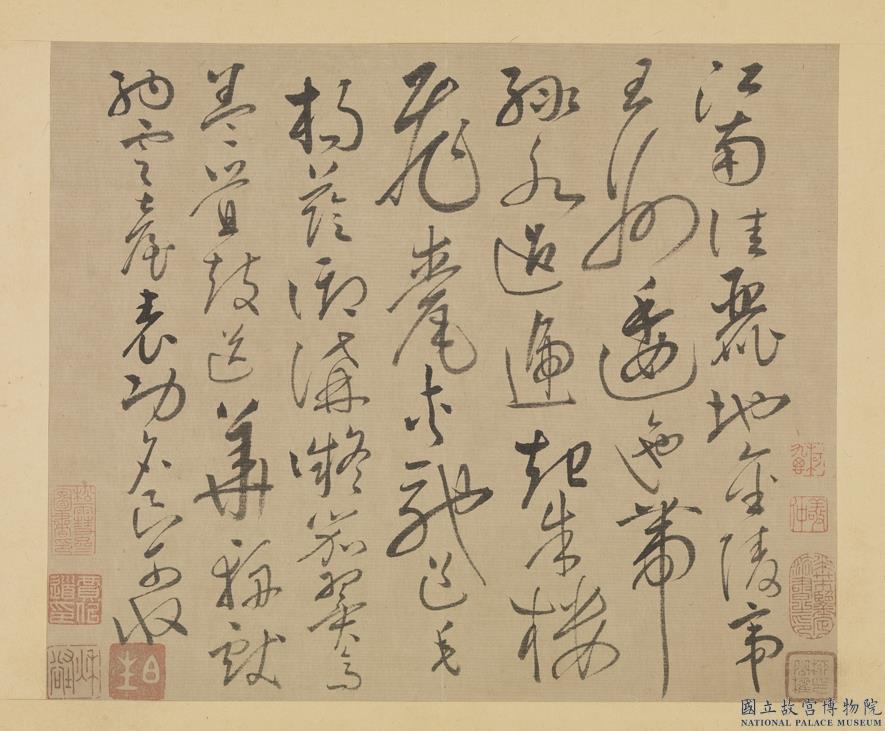 江南佳麗地金陵帝
王州逶迤帶
綠水迢遞起朱樓
飛甍夾馳道垂
楊蔭御溝凝笳翼高
蓋疊鼓送華輈獻
納雲臺表功名良可收
國立故宮博物院
NATIONAL PALACE MUSEUM